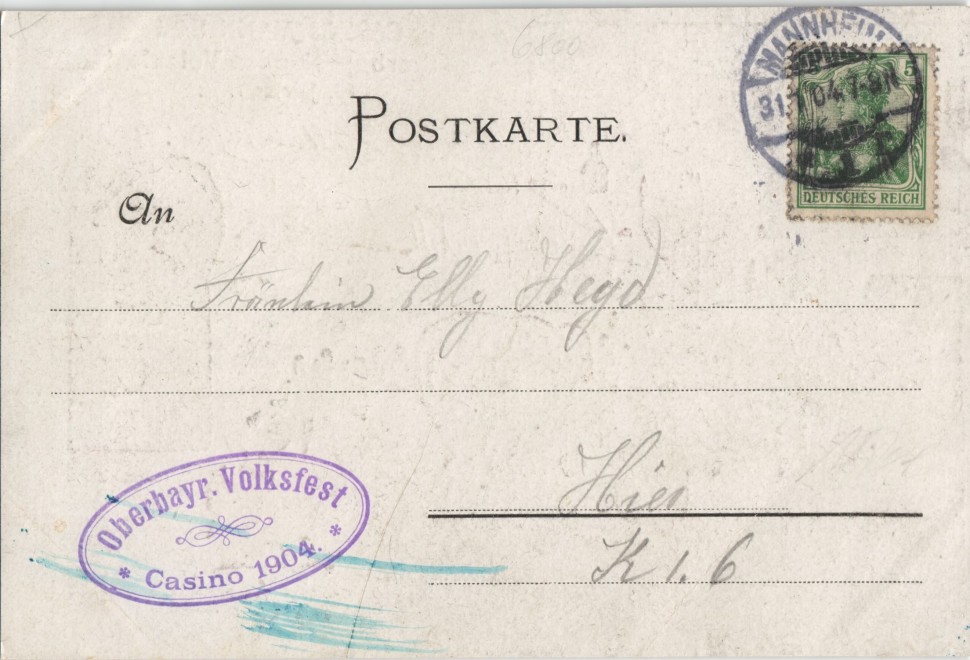 6800
MANNHEIM
31. 1. 04. 7-8N
1
5
DEUTSCHES REICH
POSTKARTE.
An
Fräulein Elly Heyd
Hier
K 1. 6
Oberbayr. Volksfest
* Casino 1904. *